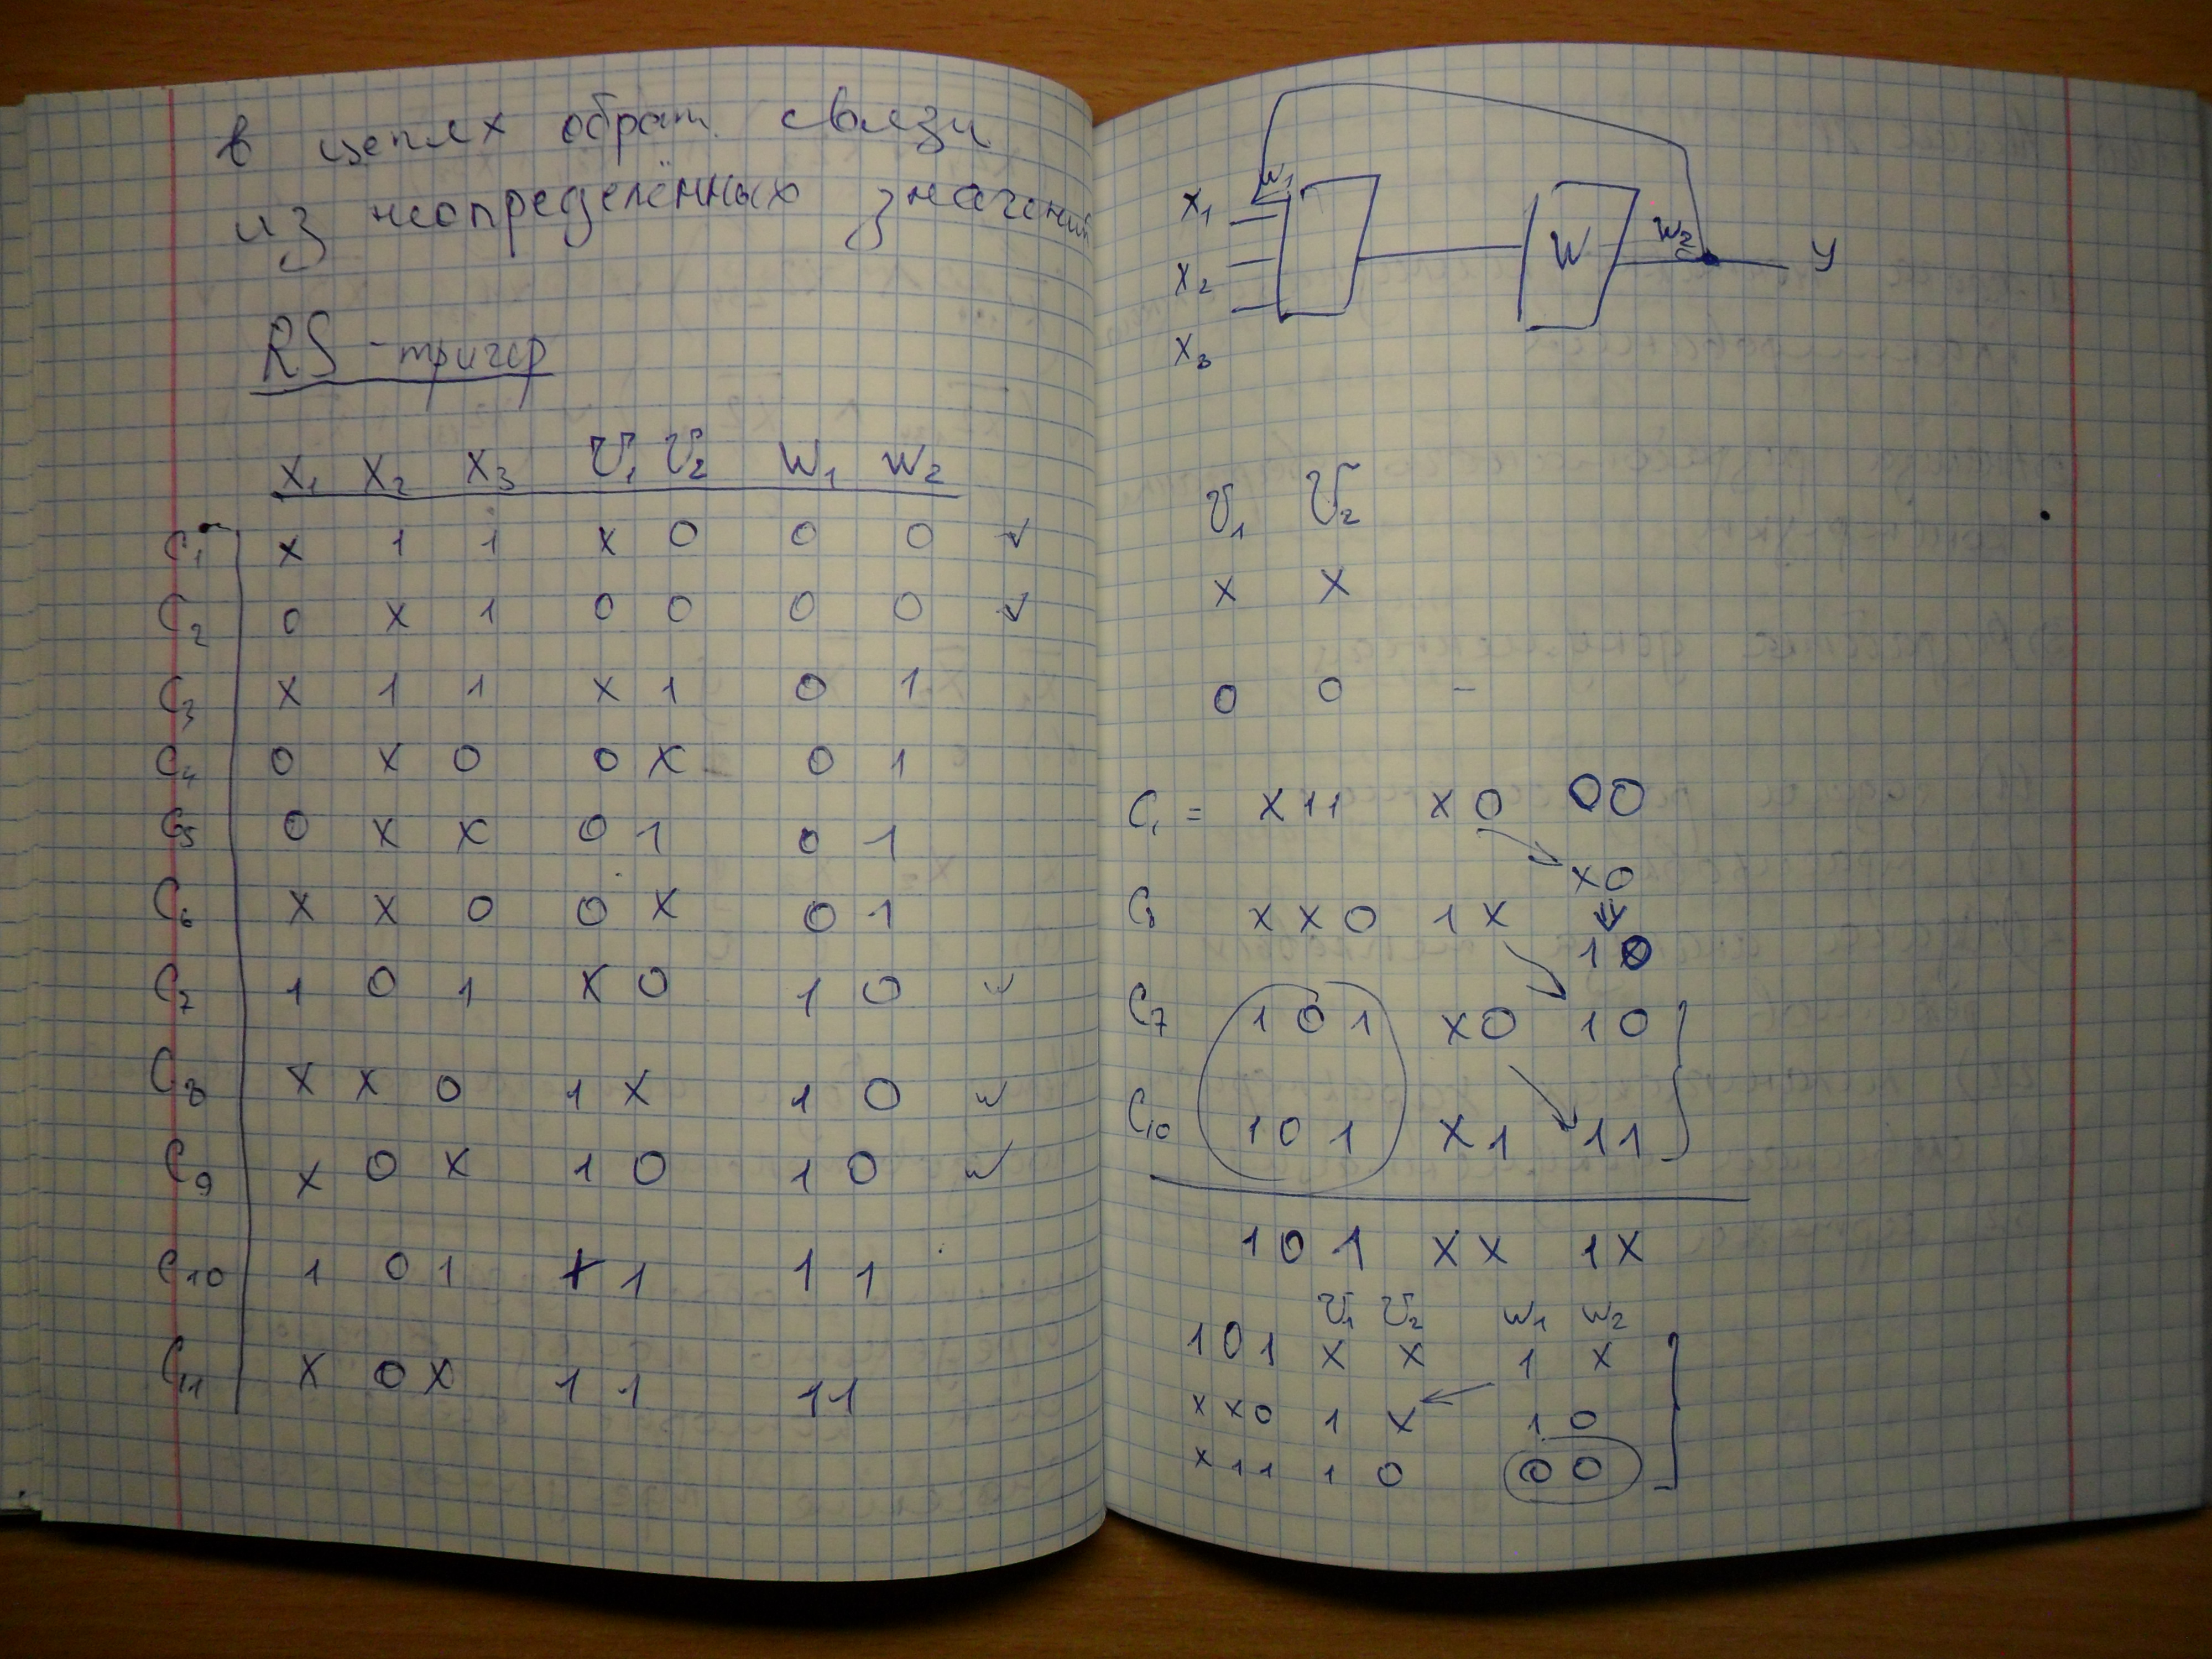 в цепях обрат. связи
из неопределённых значений
RS-тригер
x₁ x₂ x₃ V₁ V₂ W₁ W₂
C₁ x 1 1 x 0 0 0 ✓
C₂ 0 x 1 0 0 0 0 ✓
C₃ x 1 1 x 1 0 1
C₄ 0 x 0 0 x 0 1
C₅ 0 x x 0 1 0 1
C₆ x x 0 0 x 0 1
C₇ 1 0 1 x 0 1 0 ✓
C₈ x x 0 1 x 1 0 ✓
C₉ x 0 x 1 0 1 0 ✓
C₁₀ 1 0 1 x 1 1 1
C₁₁ x 0 x 1 1 1 1
W₁
x₁
x₂
x₃
W
W₂
y
V₁ V₂
x x
0 0 -
C₁ = x 1 1 x 0 0 0
x 0
C₈ x x 0 1 x
1 0
C₇ 1 0 1 x 0 1 0
C₁₀ 1 0 1 x 1 1 1
1 0 1 x x 1 x
V₁ V₂ W₁ W₂
1 0 1 x x 1 x
x x 0 1 x 1 0
x 1 1 1 0 0 0